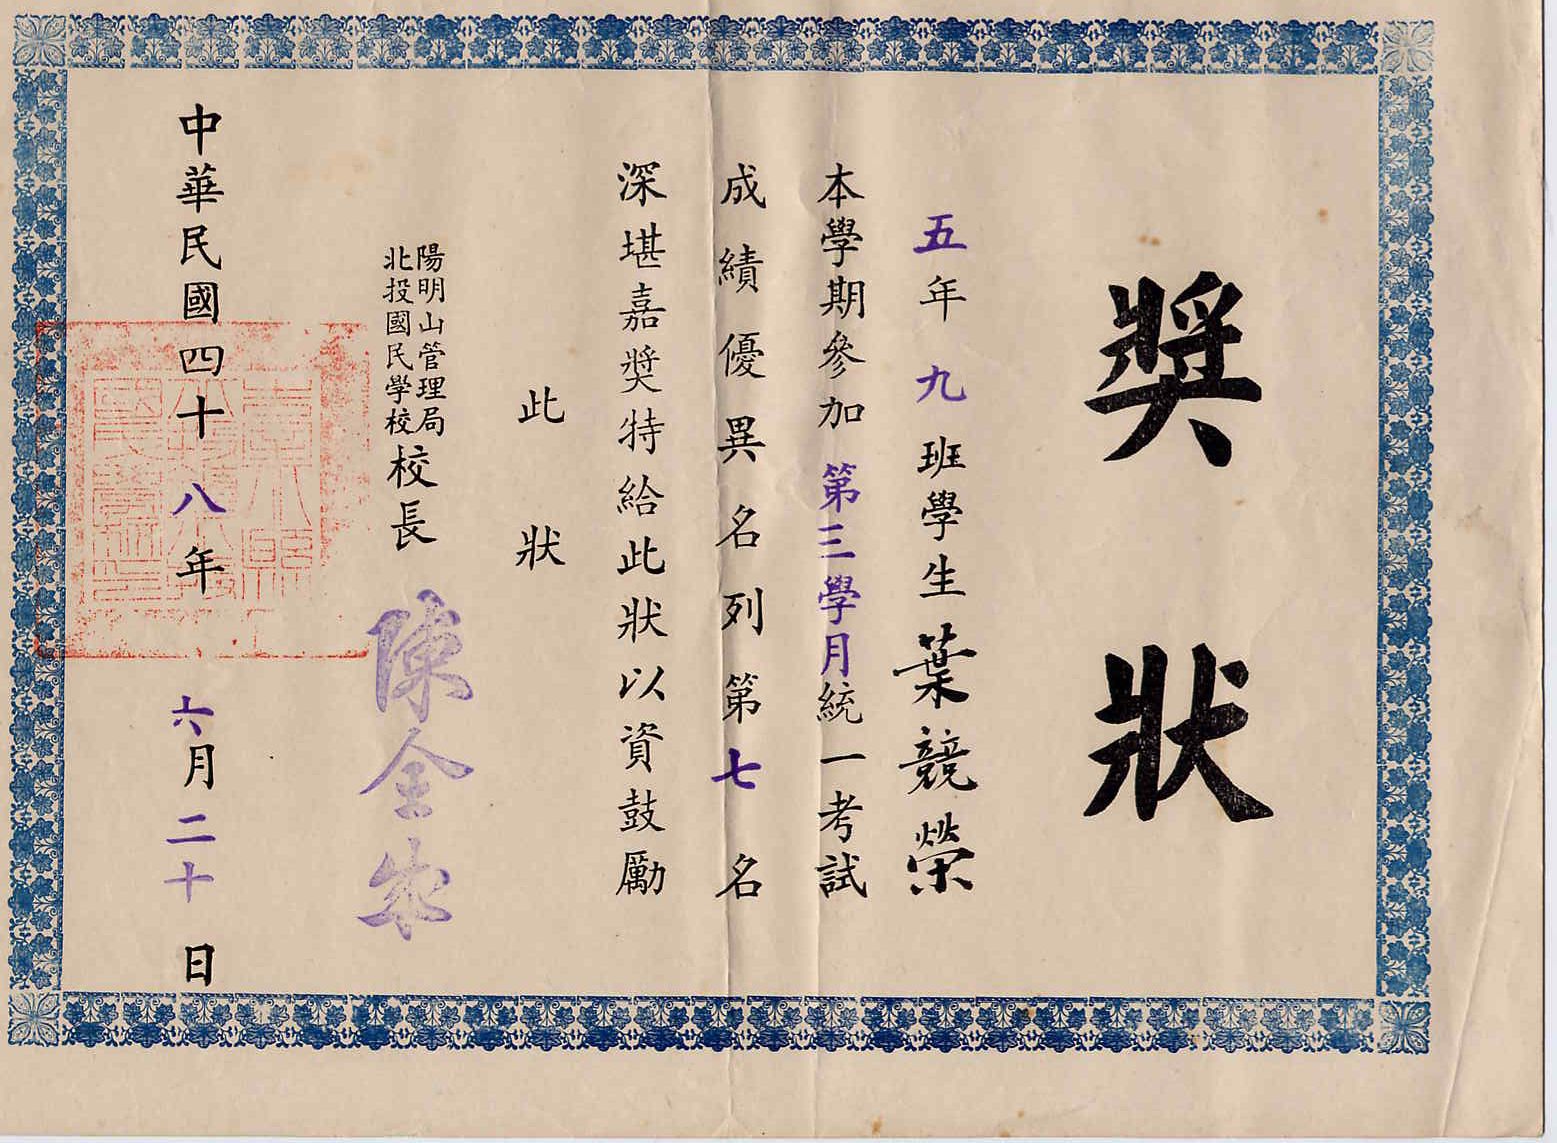 獎狀
五年九班學生葉競榮
本學期參加第三學月統一考試
成績優異名列第七名
深堪嘉獎特給此狀以資鼓勵
此狀
陽明山管理局
北投國民學校
校長
陳金
中華民國四十八年六月二十日